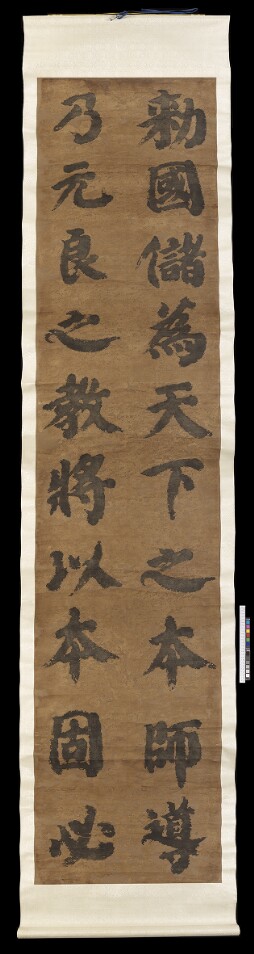 勑國儲為天下之本師導
乃元良之教將以本固必